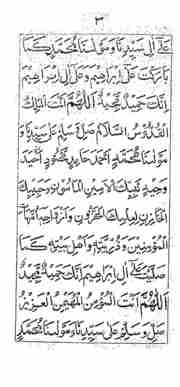 ٣
عَلَى آلِ سَيِّدِنَا وَمَوْلَنَا مُحَمَّدٍ كَمَا
بَارَكْتَ عَلَى إِبْرَاهِيمَ وَعَلَى آلِ إِبْرَاهِيمَ
إِنَّكَ حَمِيدٌ مَجِيدٌ اللَّهُمَّ أَنْتَ الْمَلِكُ
الْقُدُّوسُ السَّلَامُ صَلِّ وَسَلِّمْ عَلَى سَيِّدِنَا وَ
مَوْلَنَا مُحَمَّدٍ أَحْمَدَ حَامِدٍ مَحْمُودٍ أَحِيدَ
وَحِيدٍ نَبِيِّكَ الْأَمِينِ الْمَأْمُونِ وَحَبِيبِكَ
الْخَازِنِ لِعِلْمِكَ الْمَخْزُونِ وَأَزْوَاجِهِ أُمَّهَاتِ
الْمُؤْمِنِينَ وَذُرِّيَّتِهِ وَأَهْلِ بَيْتِهِ كَمَا
صَلَّيْتَ عَلَى آلِ إِبْرَاهِيمَ إِنَّكَ حَمِيدٌ مَجِيدٌ
اللَّهُمَّ أَنْتَ الْمُؤْمِنُ الْمُهَيْمِنُ الْعَزِيزُ
صَلِّ وَسَلِّمْ عَلَى سَيِّدِنَا وَمَوْلَنَا مُحَمَّدٍ